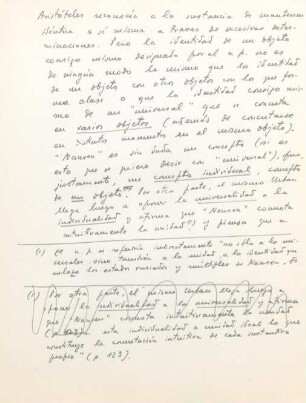 Aristóteles a la sustancia de mantenerse
idéntica a sí misma a través de sucesivas deter-
minaciones. Pero la identidad de un objeto
consigo mismo designada por el n. p. no es
de ningún modo la misma que la identidad
de un objeto con otros objetos con los que for-
ma clase o que la identidad consigo mis-
mo de un "universal" que se connota
en varios objetos (además de connotarse
en distintos momentos en el mismo objeto).
"Nansen" es sin duda un concepto (si es
esto que se quiere decir con "universal"), pero,
justamente, un concepto individual, concepto
de un objeto. Por otra parte, el mismo Urban
llega luego a oponer la universalidad a la
individualidad y afirma que "Nansen" connota
intuitivamente la unidad y piensa que a
(1) El n. p. se referiría indirectamente "no sólo a los uni-
versales sino también a la unidad o la identidad que
enlaza los estados variados y múltiples de Nansen. Es
(1) Por otra parte, el mismo Urban llega luego a
oponer la individualidad a los universalidad y afirma
que "Nansen" connota intuitivamente la unidad
esta individualidad o unidad ideal lo que
constituye la connotación intuitiva de cada sustantivo
propio" (p. 123).